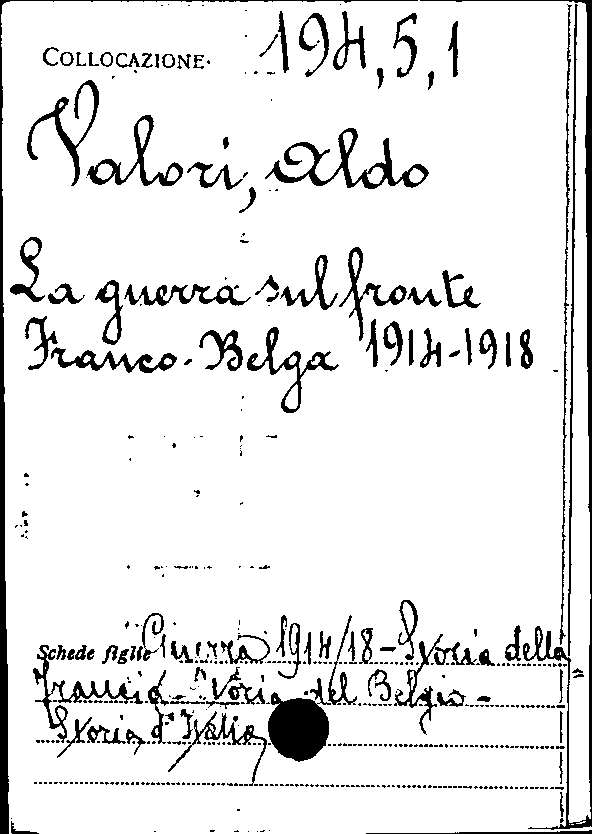 COLLOCAZIONE. 194,5,1
Valori, Aldo
La guerra sul fronte
Franco-Belga 1914-1918
Schede figlie Guerra 1914/18 - Storia della
Francia - Storia del Belgio -
Storia d'Italia